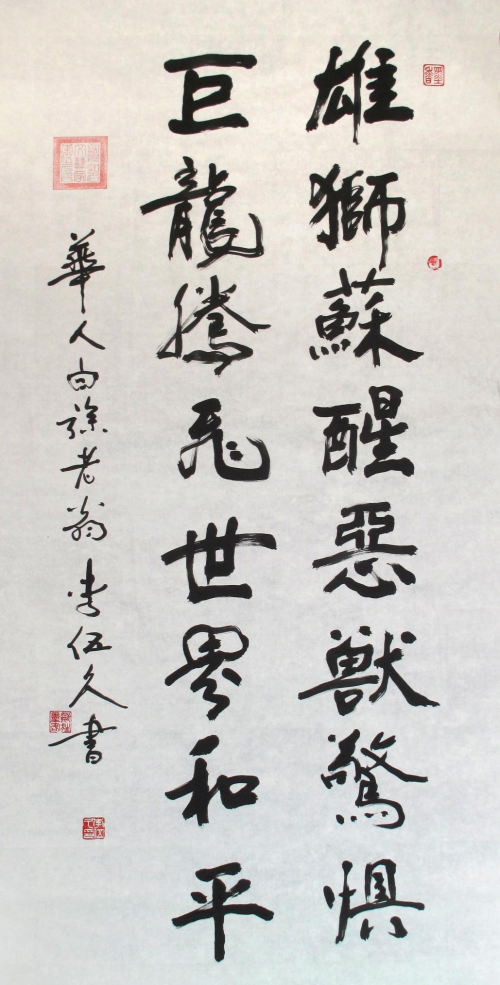 雄獅蘇醒惡獸驚懼
巨龍騰飛世界和平
華人白孫老翁李伍久書